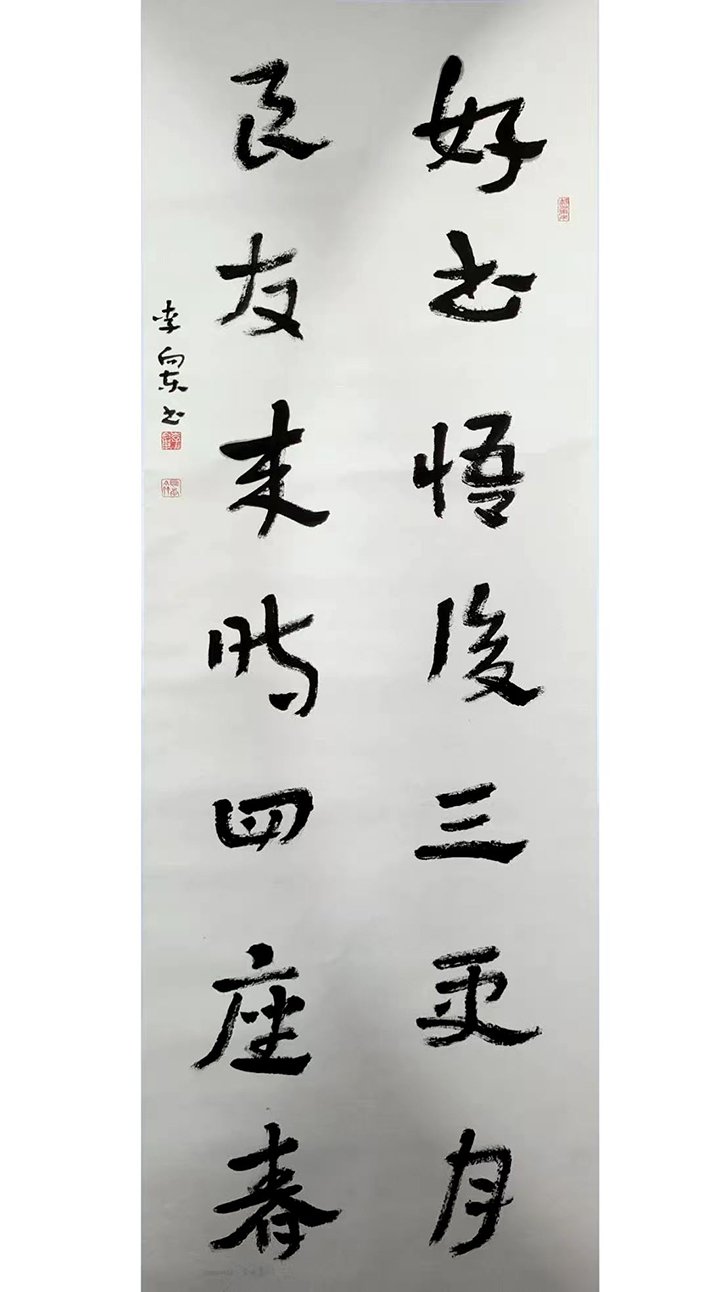 好书悟後三更月
良友来时四座春
李向东书